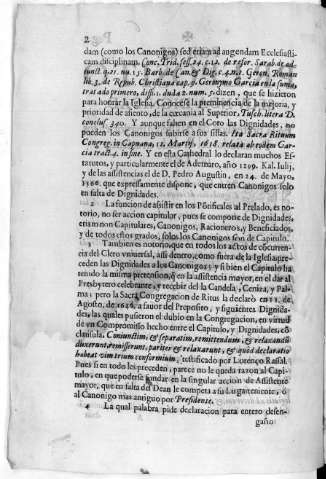 2
dam (como los Canonigos) sed etiam ad augendam Ecclesiasti-
cam disciplinam. Conc. Trid. sess. 24. c. 12. de refor. Sarab. de ad-
junct. q. 21. nu. 15. Barb. de Can. & Dig. c. 4. n. 1. Geron. Roman
lib. 3. de Repub. Christiana cap. 9. Geronymo Garcia en la suma,
tras ado primero, diffi. duda 2. num. 5. dizen, que se hizieron
para honrar la Iglesia. Conocese la preminencia de la mejoria, y
prioridad de asiento, de la cercania al Superior, Tusch. litera D.
conclus 340. Y aunque falten en el Coro las Dignidades, no
pueden los Canonigos subirse a sus sillas. Ita Sacra Rituum
Congreg. in Capuana, 12. Martij, 1618. relata ab eodem Gar-
cia tract 4. in fine. Y en esta Cathedral lo declaran muchos Es-
tatutos, y particularmente el de Azemaro, año 1249. Kal. Iulij,
y de las assistencias el de D. Pedro Augustin, en 24. de Mayo,
1560. que expressamente dispone, que entren Canonigos solo
en falta de Dignidades.
2 La funcion de assistir en los Pōtificales al Prelado, es no-
torio, no ser accion capitular, pues se compone de Dignidades,
etiam non Capitulares, Canonigos, Racioneros, y Beneficiados,
y de todos estos grados, solos los Canonigos son de Capitulo.
3 Tambien es notorio, que en todos los actos de concurren-
cia del Clero universal, assi dentro, como fuera de la Iglesia prece-
den las Dignidades a los Canonigos: y si bien el Capitulo ha
tenido la misma pretension, ò en la assistencia mayor, en el dar al
Presbytero celebrante, y recebir del la Candela, Ceniza, y Pal-
ma; pero la Sacra Congregacion de Ritus la declarò en 12. de
Agosto, de 1626. a favor del Preposito, y siguientes Dignida-
des, las quales pusieron el dubio en la Congregacion, en virtud
de un Compromisso hecho entre el Capitulo, y Dignidades, cō
clausula. Coniunctim, & separatim, remittendum, & relaxandū
duxerunt, remiserunt, pariter & relaxarunt, & quòd declaratio
habeat vim trium conformium, testificado por Lourenço Rassal.
Pues si en todo les preceden, parece no le queda razon al Capi-
tulo, en que poderse fundar en la singular accion de Assistente
mayor, que en falta del Dean le competa a su Lugarteniente, ò
al Canonigo mas antiguo por Presidente.
4 La qual palabra, pide declaracion para entero desen-
gaño